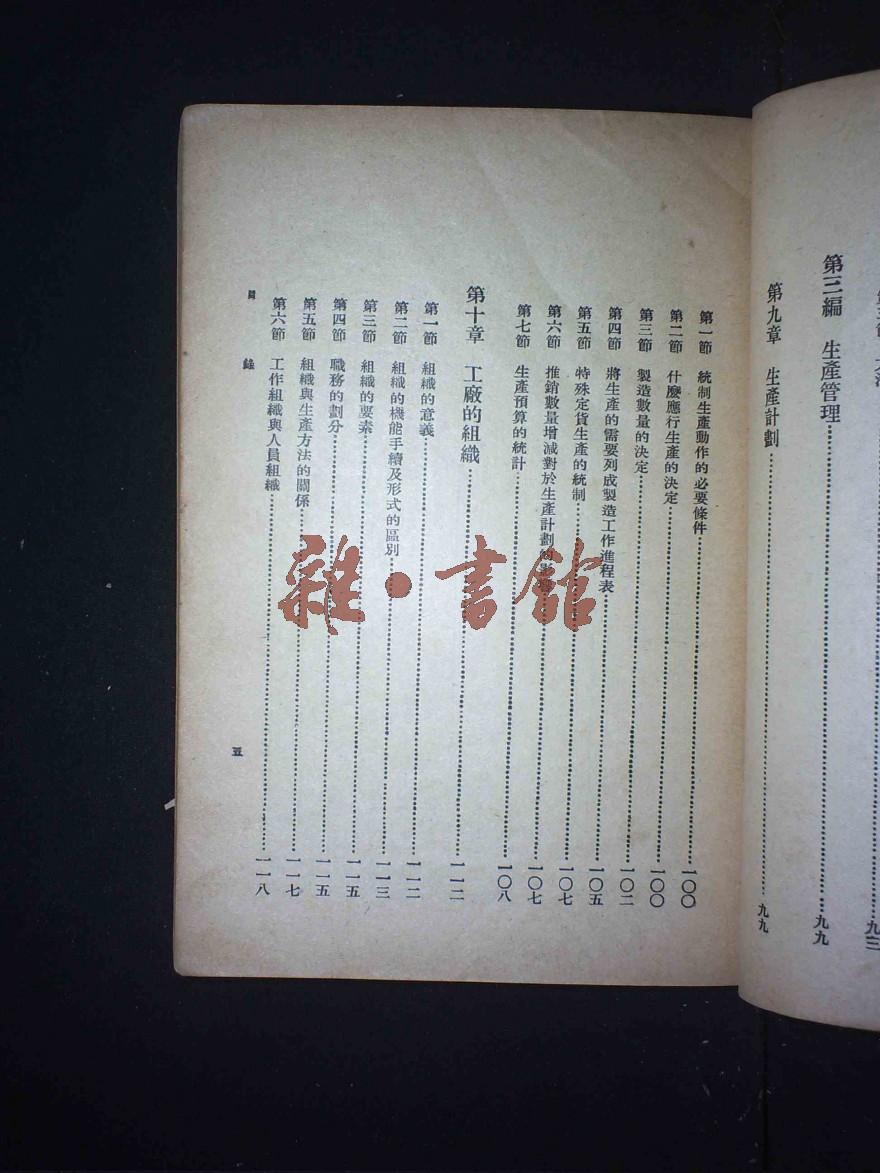 九三
第三編 生產管理……九九
第九章 生產計劃……九九
第一節 統制生產動作的必要條件……一〇〇
第二節 什麼應行生產的決定……一〇〇
第三節 製造數量的決定……一〇二
第四節 將生產的需要列成製造工作進程表……一〇五
第五節 特殊定貨生產的統制……一〇七
第六節 推銷數量增減對於生產計劃的影響……一〇七
第七節 生產預算的統計……一〇八
第十章 工廠的組織……一一二
第一節 組織的意義……一一二
第二節 組織的機能手續及形式的區別……一一三
第三節 組織的要素……一一五
第四節 職務的劃分……一一五
第五節 組織與生產方法的關係……一一七
第六節 工作組織與人員組織……一一八
目錄 五
雜·書館